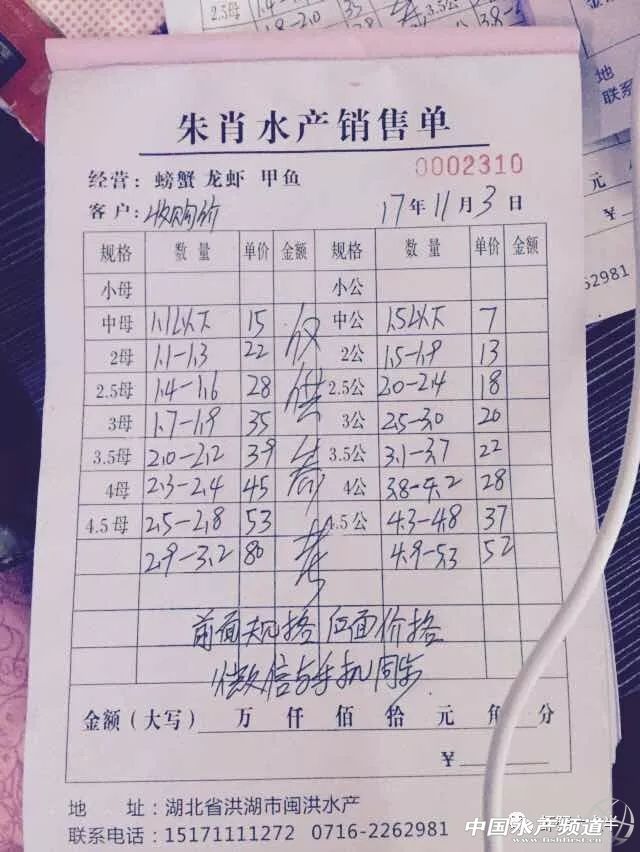 朱肖水产销售单
经营：螃蟹 龙虾 甲鱼 0002310
客户：收购价 17年11月3日
规格 数量 单价 金额 规格 数量 单价 金额
小母 小公
中母 1.1以下 15 仅 中公 1.5以下 7
2母 1.1-1.3 22 2公 1.5-1.9 13
2.5母 1.4-1.6 28 供 2.5公 2.0-2.4 18
3母 1.7-1.9 35 3公 2.5-3.0 20
3.5母 2.0-2.2 39 参 3.5公 3.1-3.7 22
4母 2.3-2.4 45 4公 3.8-4.2 28
4.5母 2.5-2.8 53 4.5公 4.3-4.8 37
2.9-3.2 80 考 4.9-5.3 52
前面规格 后面价格
微信与手机同步
金额（大写） 万 仟 佰 拾 元 角 分
¥
地 址：湖北省洪湖市闽洪水产
联系电话：15171111272 0716-2262981
中国水产频道
www.fishfirst.cn